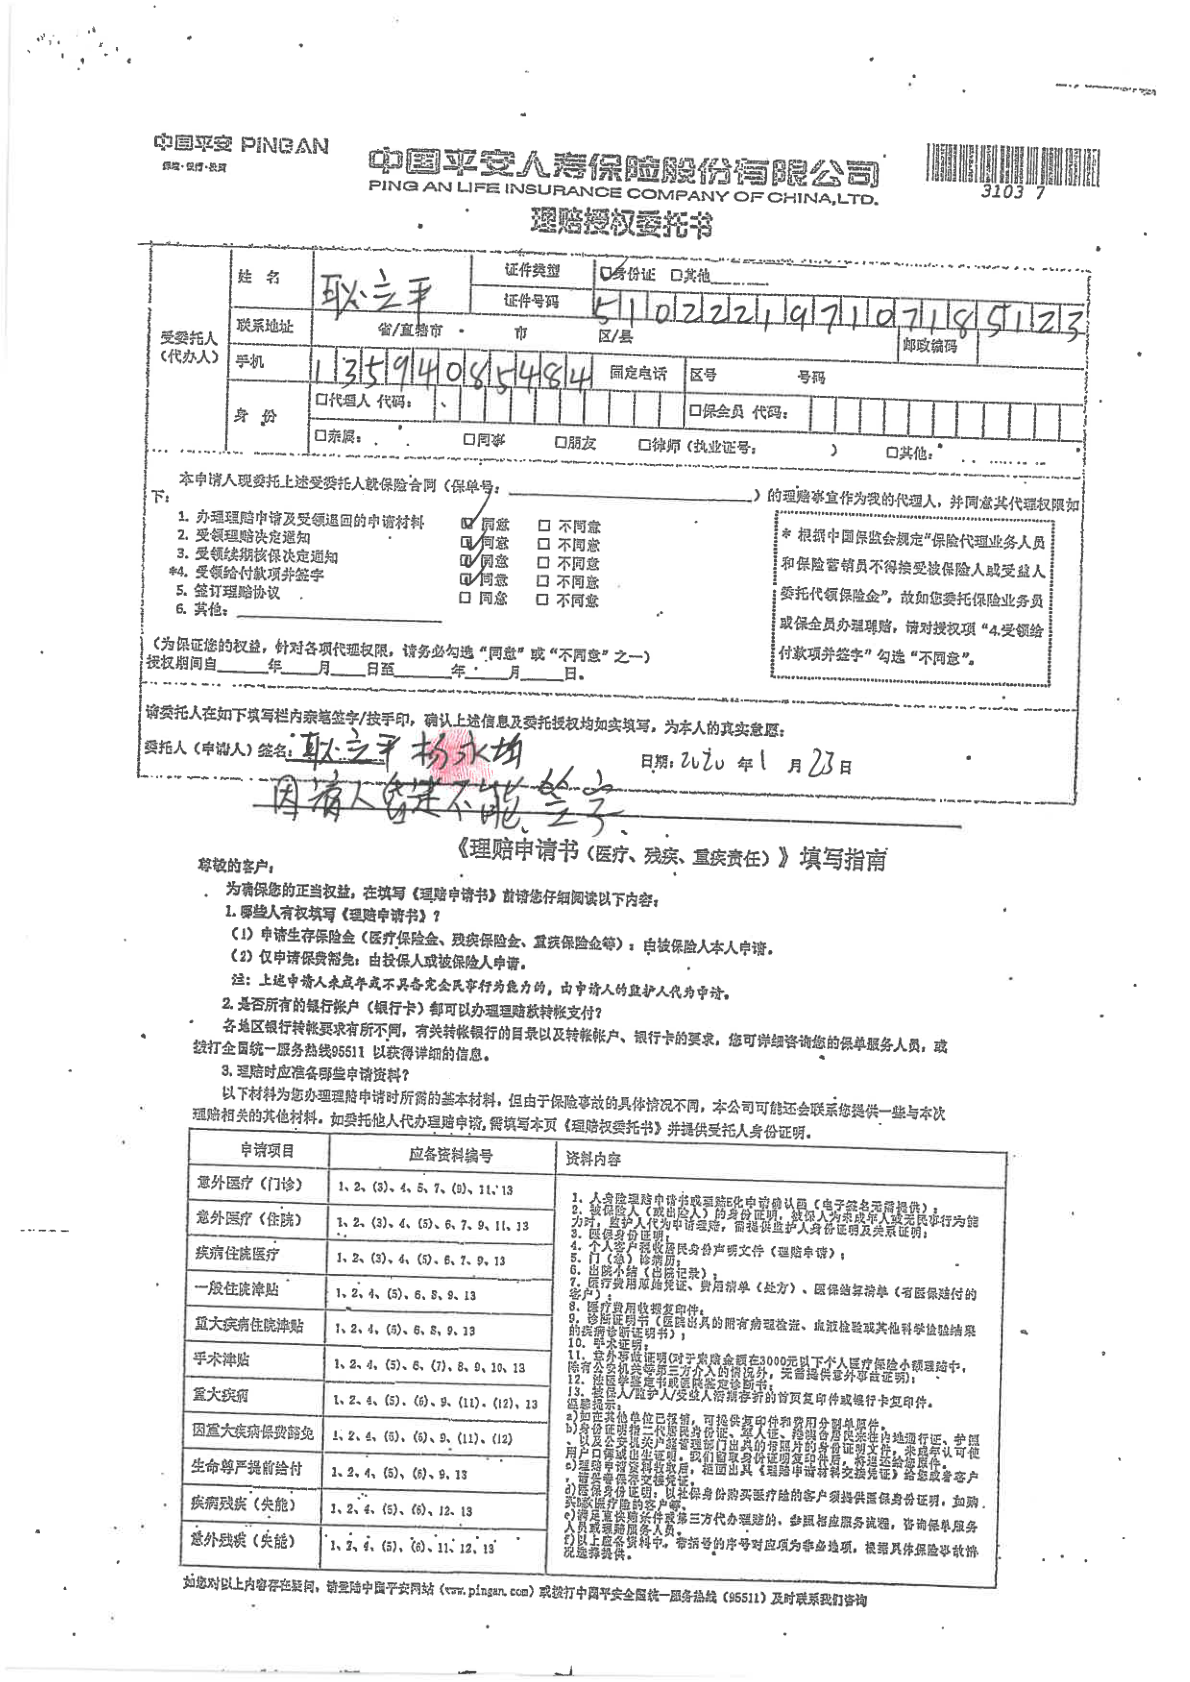 中国平安 PINGAN
保险·银行·投资
中国平安人寿保险股份有限公司
PING AN LIFE INSURANCE COMPANY OF CHINA,LTD.
3103 7
理赔授权委托书
受委托人
(代办人)
姓 名
耿立平
证件类型
☑身份证 □其他
证件号码
510222197107185123
联系地址
省/直辖市 市 区/县
邮政编码
手机
13594085484
固定电话
区号 号码
身 份
□代理人 代码:
□保全员 代码:
□亲属: □同事 □朋友 □律师(执业证号: ) □其他:
本申请人现委托上述受委托人就保险合同(保单号: )的理赔事宜作为我的代理人,并同意其代理权限如
下:
1. 办理理赔申请及受领退回的申请材料 ☑ 同意 □ 不同意
2. 受领理赔决定通知 ☑ 同意 □ 不同意
3. 受领续期核保决定通知 ☑ 同意 □ 不同意
*4. 受领给付款项并签字 ☑ 同意 □ 不同意
5. 签订理赔协议 □ 同意 □ 不同意
6. 其他:
* 根据中国保监会规定"保险代理业务人员
和保险营销员不得接受被保险人或受益人
委托代领保险金",故如您委托保险业务员
或保全员办理理赔,请对授权项"4.受领给
付款项并签字"勾选"不同意"。
(为保证您的权益,针对各项代理权限,请务必勾选"同意"或"不同意"之一)
授权期间自 年 月 日至 年 月 日。
请委托人在如下填写栏内亲笔签字/按手印,确认上述信息及委托授权均如实填写,为本人的真实意愿:
委托人(申请人)签名: 耿立平 杨永均 日期: 2020 年 1 月 23 日
因病人昏迷不能签字
《理赔申请书(医疗、残疾、重疾责任)》填写指南
尊敬的客户:
为确保您的正当权益,在填写《理赔申请书》前请您仔细阅读以下内容:
1. 哪些人有权填写《理赔申请书》?
(1)申请生存保险金(医疗保险金、残疾保险金、重疾保险金等):由被保险人本人申请。
(2)仅申请保费豁免:由投保人或被保险人申请。
注:上述申请人未成年或不具备完全民事行为能力的,由申请人的监护人代为申请。
2. 是否所有的银行帐户(银行卡)都可以办理理赔款转帐支付?
各地区银行转帐要求有所不同,有关转帐银行的目录以及转帐帐户、银行卡的要求,您可详细咨询您的保单服务人员,或
拨打全国统一服务热线95511 以获得详细的信息。
3. 理赔时应准备哪些申请资料?
以下材料为您办理理赔申请时所需的基本材料,但由于保险事故的具体情况不同,本公司可能还会联系您提供一些与本次
理赔相关的其他材料。如委托他人代办理赔申请,需填写本页《理赔权委托书》并提供受托人身份证明。
申请项目 应备资料编号 资料内容
意外医疗(门诊) 1、2、(3)、4、5、7、(9)、11、13
意外医疗(住院) 1、2、(3)、4、(5)、6、7、9、11、13
疾病住院医疗 1、2、(3)、4、(5)、6、7、9、13
一般住院津贴 1、2、4、(5)、6、8、9、13
重大疾病住院津贴 1、2、4、(5)、6、8、9、13
手术津贴 1、2、4、(5)、6、(7)、8、9、10、13
重大疾病 1、2、4、(5)、(6)、9、(11)、(12)、13
因重大疾病保费豁免 1、2、4、(5)、(6)、9、(11)、(12)
生命尊严提前给付 1、2、4、(5)、(6)、9、13
疾病残疾(失能) 1、2、4、(5)、(6)、12、13
意外残疾(失能) 1、2、4、(5)、(6)、11、12、13
1. 人身险理赔申请书或理赔E化申请确认函(电子签名无需提供);
2. 被保险人(或出险人)的身份证明,被保人为未成年人或无民事行为能
力时,监护人代为申请理赔,需提供监护人身份证明及关系证明;
3. 医保身份证明;
4. 个人客户税收居民身份声明文件(理赔申请);
5. 门(急)诊病历;
6. 出院小结(出院记录);
7. 医疗费用原始凭证、费用清单(处方)、医保结算清单(有医保赔付的
客户);
8. 医疗费用收据复印件;
9. 诊断证明书(医院出具的附有病理检查、血液检验或其他科学检验结果
的疾病诊断证明书);
10. 手术证明;
11. 意外事故证明(对于索赔金额在3000元以下个人医疗保险小额理赔中,
除有公安机关等第三方介入的情况外,无需提供意外事故证明);
12. 法医学鉴定书或医院鉴定诊断书;
13. 被保人/监护人/受益人活期存折的首页复印件或银行卡复印件。
温馨提示:
a)如在其他单位已报销,可提供复印件和费用分割单原件。
b)身份证明指二代居民身份证、军人证、港澳台居民来往内地通行证、护照
、以及公安机关户籍管理部门出具的带照片的身份证明文件,未成年认可使
用户口簿或出生证明。我们留取身份证明复印件后,将返还给您原件。
c)理赔申请资料收取后,柜面出具《理赔申请材料交接凭证》给您或者客户
,请妥善保存交接凭证。
d)医保身份证明:以社保身份购买医疗险的客户须提供医保身份证明,如购
买b款医疗险的客户等。
e)满足直接赔条件或第三方代办理赔的,参照相应服务流程,咨询保单服务
人员或理赔服务人员。
f)以上应备资料中,带括号的序号对应项为非必选项,根据具体保险事故情
况选择提供。
如您对以上内容存在疑问,请登陆中国平安网站(www.pingan.com)或拨打中国平安全国统一服务热线(95511)及时联系我们咨询